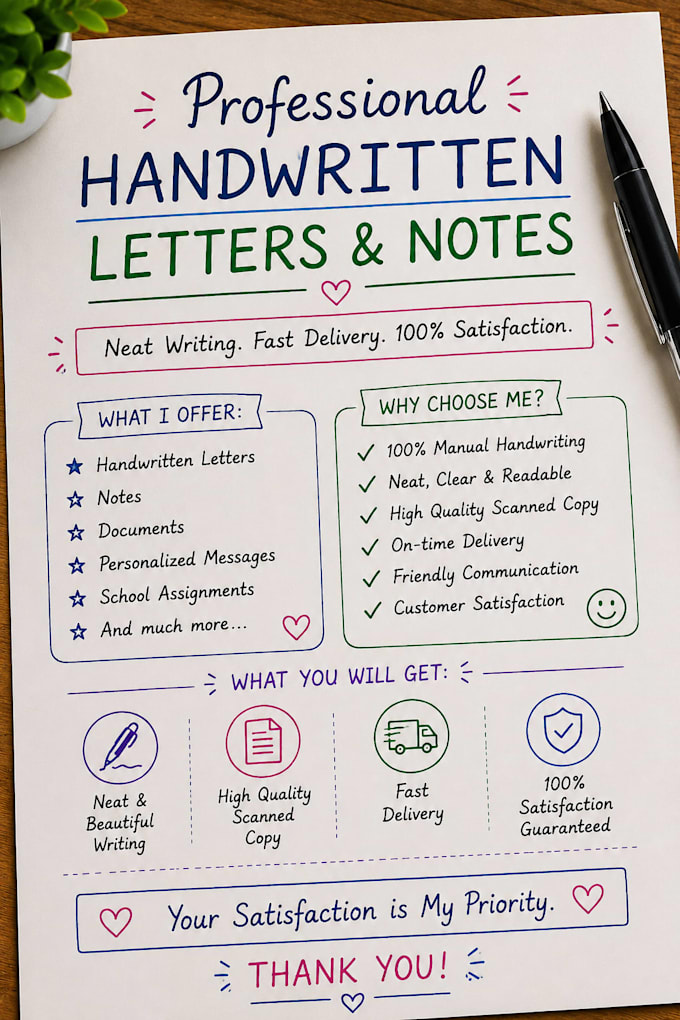 Professional
HANDWRITTEN
LETTERS & NOTES
Neat Writing. Fast Delivery. 100% Satisfaction.
WHAT I OFFER:
Handwritten Letters
Notes
Documents
Personalized Messages
School Assignments
And much more...
WHY CHOOSE ME?
100% Manual Handwriting
Neat, Clear & Readable
High Quality Scanned Copy
On-time Delivery
Friendly Communication
Customer Satisfaction
WHAT YOU WILL GET:
Neat &
Beautiful
Writing
High Quality
Scanned
Copy
Fast
Delivery
100%
Satisfaction
Guaranteed
Your Satisfaction is My Priority.
THANK YOU!